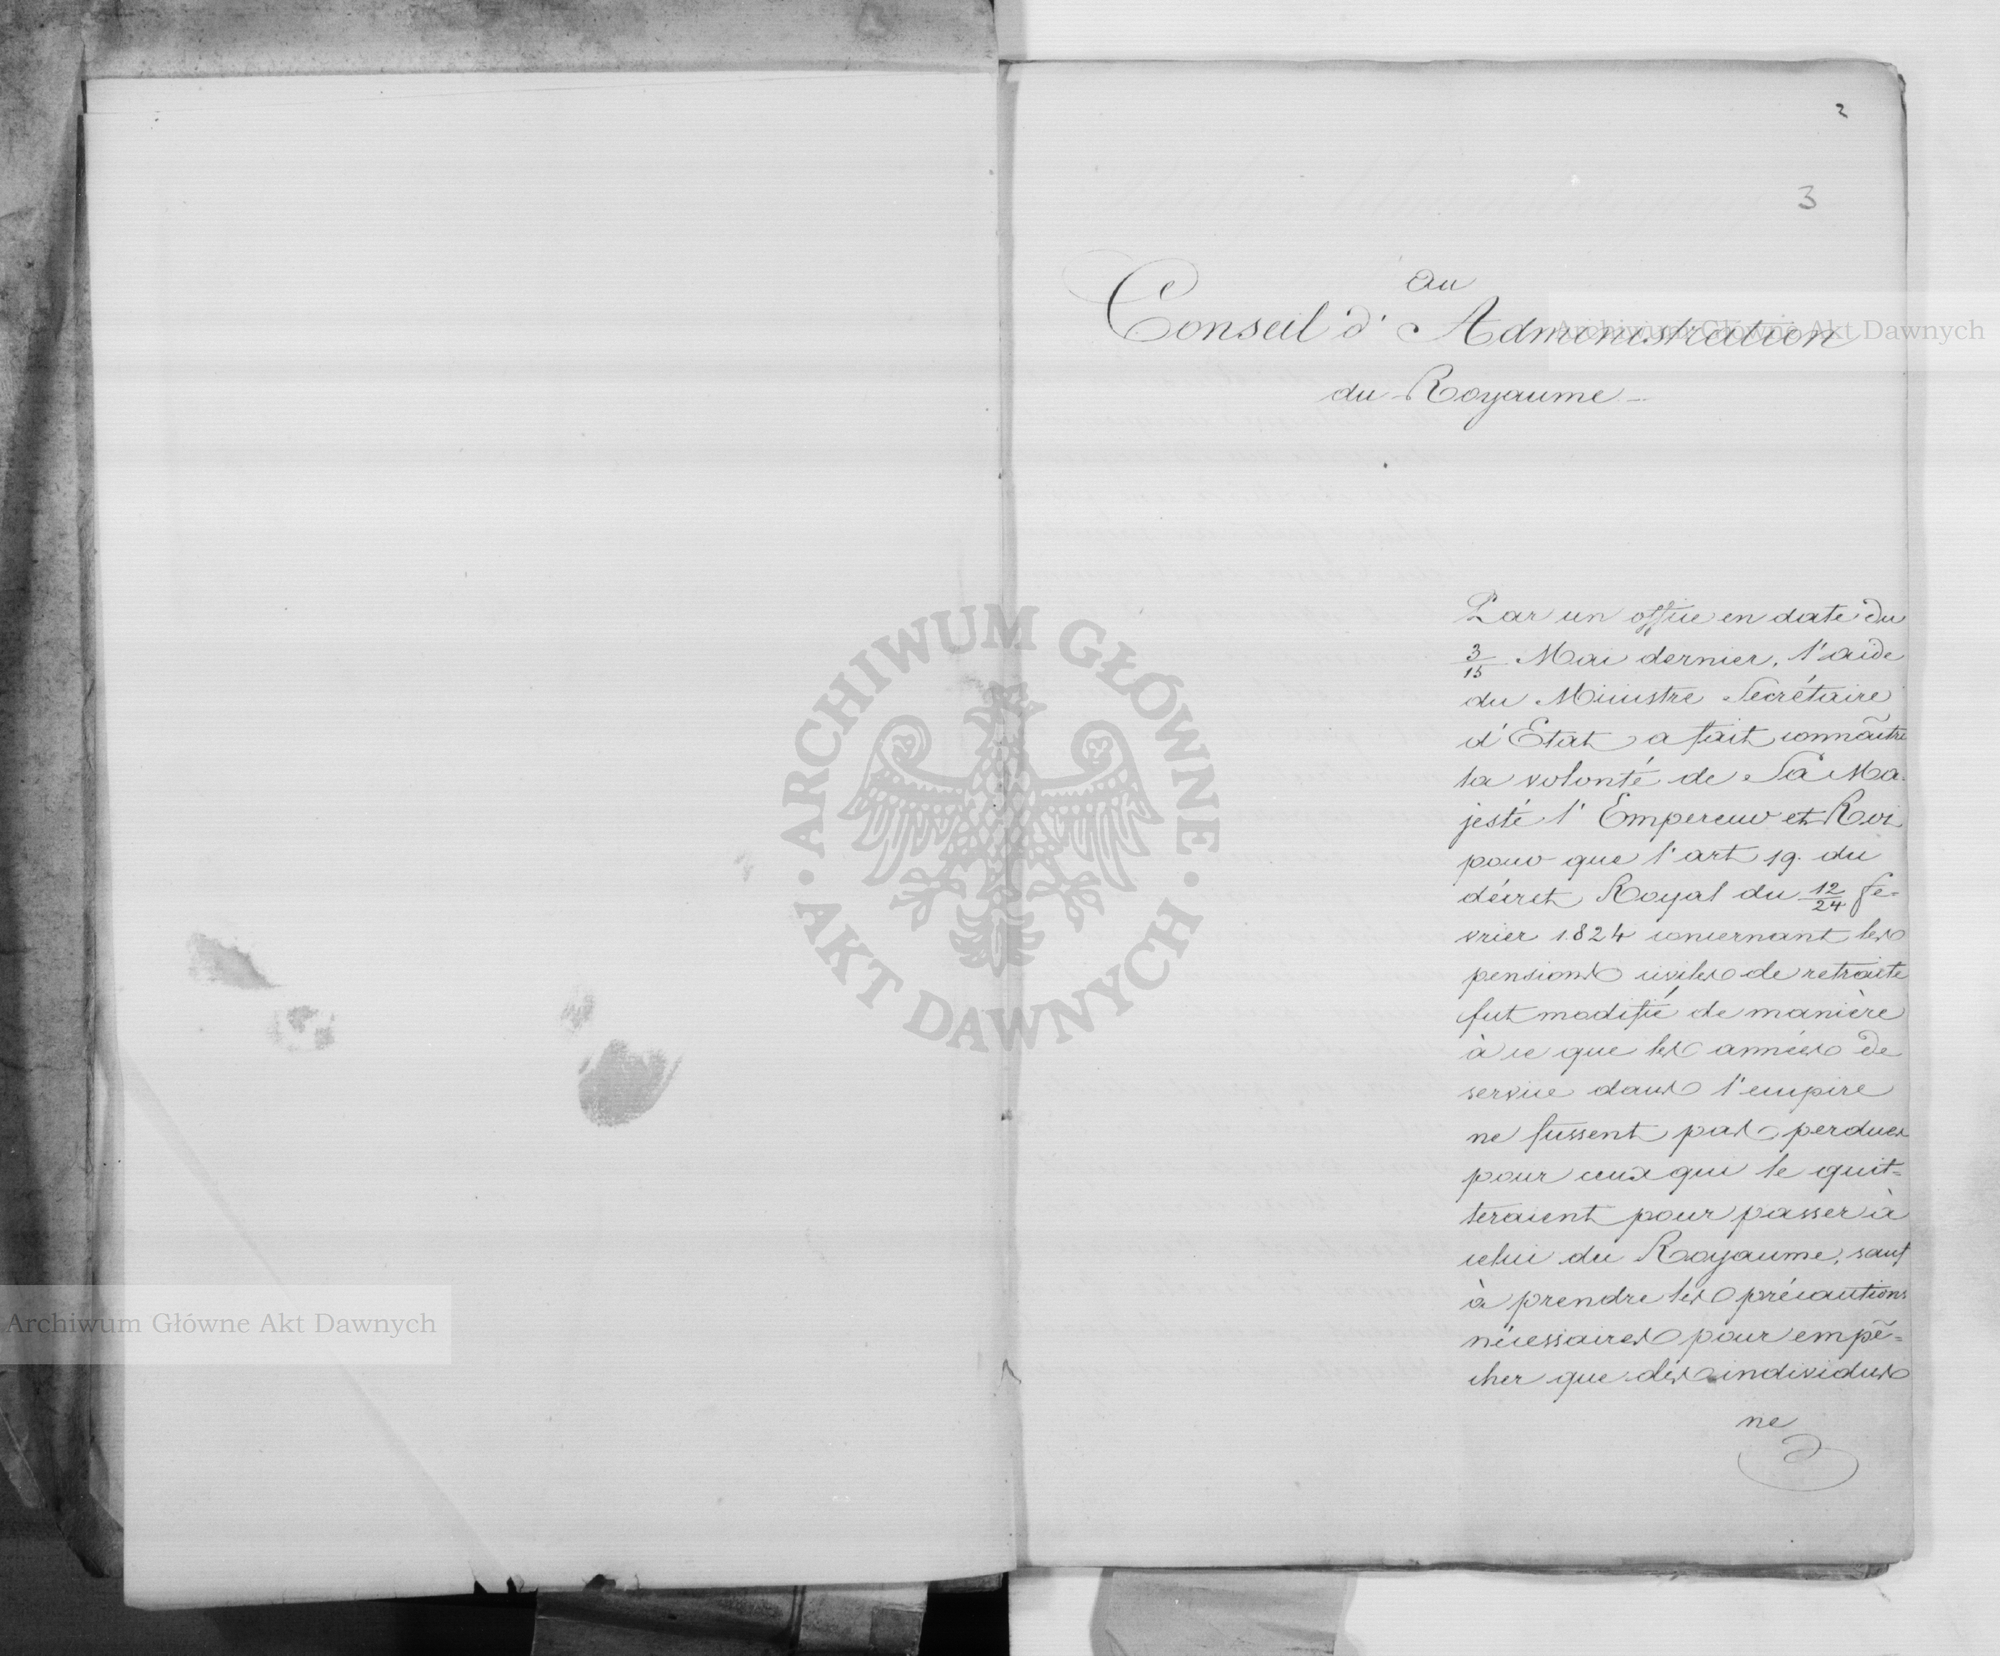 2
3
Au
Conseil d'Administration
du Royaume
Par un office en date du
3/15 Mai dernier, l'aide
du Ministre Secrétaire
d'Etat a fait connaître
la volonté de Sa Ma-
jesté l'Empereur et Roi
pour que l'art 19. du
décret Royal du 12/24 fe-
vrier 1824 concernant les
pensions civiles de retraite
fut modifié de manière
à ce que les années de
service dans l'empire
ne fussent pas perdues
pour ceux qui le quit=
teraient pour passer à
celui du Royaume, sauf
à prendre les précautions
nécessaires pour empê=
cher que des individus
ne
ARCHIWUM GŁÓWNE · AKT DAWNYCH ·
Archiwum Główne Akt Dawnych
Archiwum Główne Akt Dawnych